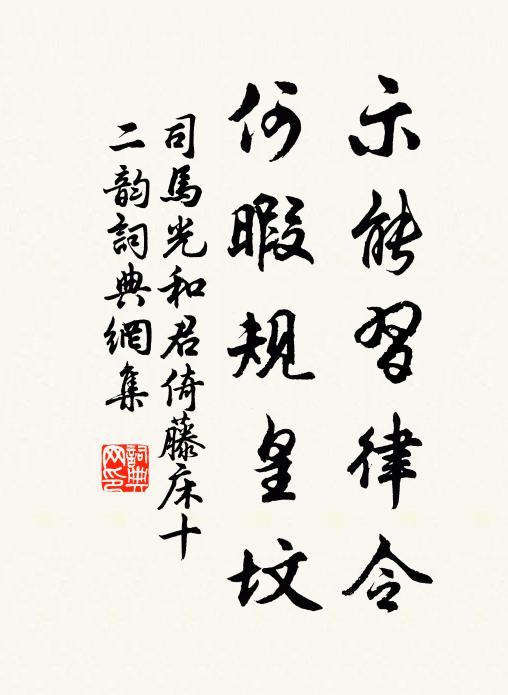 示能習律令
何暇規皇墳
司馬光和君倚藤床十
二韵詞典網集
詞典网印